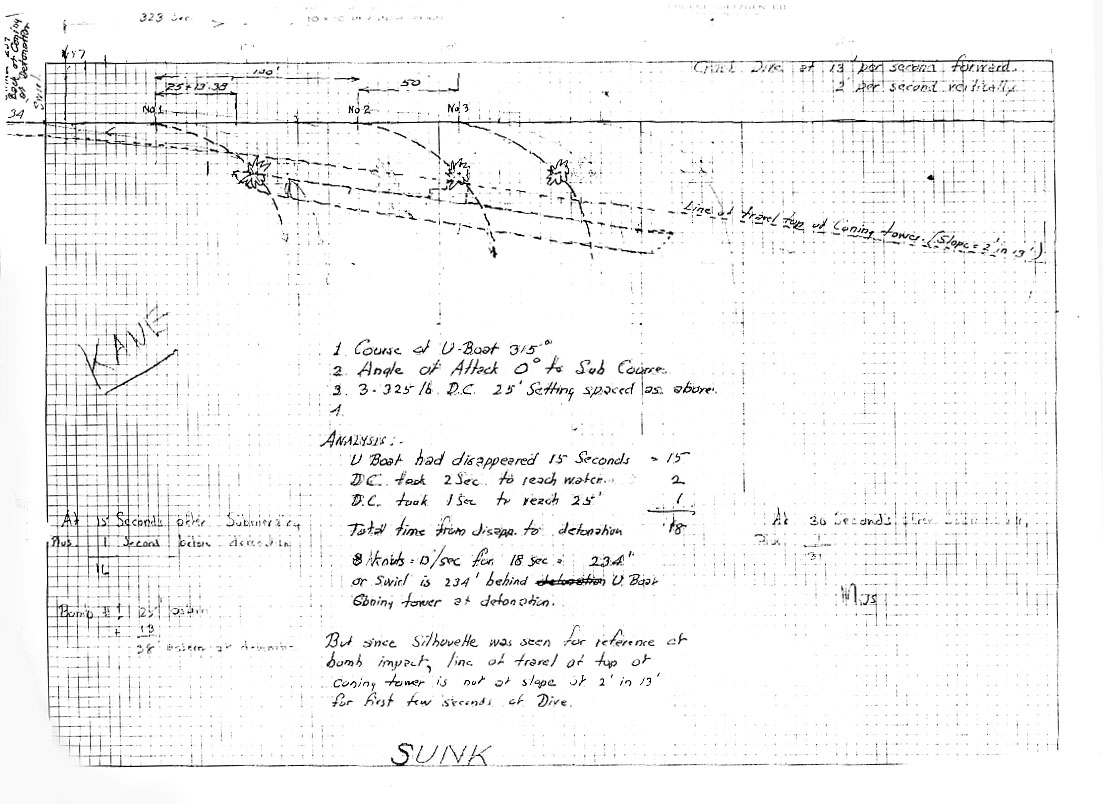 323 Sec
Back of Coning
at Detonation
Swirl
34
100'
25+13=38
50
No 1
No 2
No 3
Crash Dive at 13' per second forward.
2 per second vertically.
Line of travel top of Coning tower. (Slope = 2' in 13')
KANE
1. Course of U-Boat 315°
2. Angle of Attack 0° to Sub Course.
3. 3-325 lb. D.C. 25' Setting spaced as above.
4.
ANALYSIS:-
U Boat had disappeared 15 Seconds = 15
D.C. took 2 Sec. to reach water. 2
D.C. took 1 Sec to reach 25' 1
Total time from disapp. to detonation 18
8 Knots = 13'/sec for 18 sec = 234"
or Swirl is 234' behind detonation U Boat
Coning tower at detonation.
But since Silhouette was seen for reference at
bomb impact, line of travel of top of
coning tower is not at slope of 2' in 13'
for first few seconds of Dive.
SUNK
At 15 Seconds after Submerging
Plus 1 Second before
16
Bomb # 1 25' astern
+ 13
38' astern at
At 30 Seconds
1
31